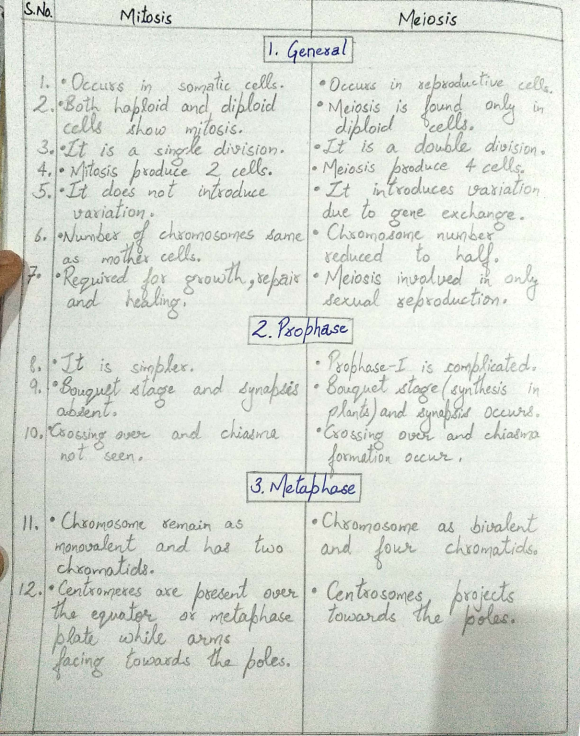 S.No. Mitosis Meiosis
1. General
1. • Occurs in somatic cells. • Occurs in reproductive cells.
2. • Both haploid and diploid • Meiosis is found only in
cells show mitosis. diploid cells.
3. • It is a single division. • It is a double division.
4. • Mitosis produce 2 cells. • Meiosis produce 4 cells.
5. • It does not introduce • It introduces variation
variation. due to gene exchange.
6. • Number of chromosomes same • Chromosome number
as mother cells. reduced to half.
7. • Required for growth, repair • Meiosis involved in only
and healing. sexual reproduction.
2. Prophase
8. • It is simpler. • Prophase-I is complicated.
9. • Bouquet stage and synapsis • Bouquet stage (synthesis in
absent. plants) and synapsis occurs.
10. • Crossing over and chiasma • Crossing over and chiasma
not seen. formation occur.
3. Metaphase
11. • Chromosome remain as • Chromosome as bivalent
monovalent and has two and four chromatids.
chromatids.
12. • Centromeres are present over • Centrosomes projects
the equator or metaphase towards the poles.
plate while arms
facing towards the poles.